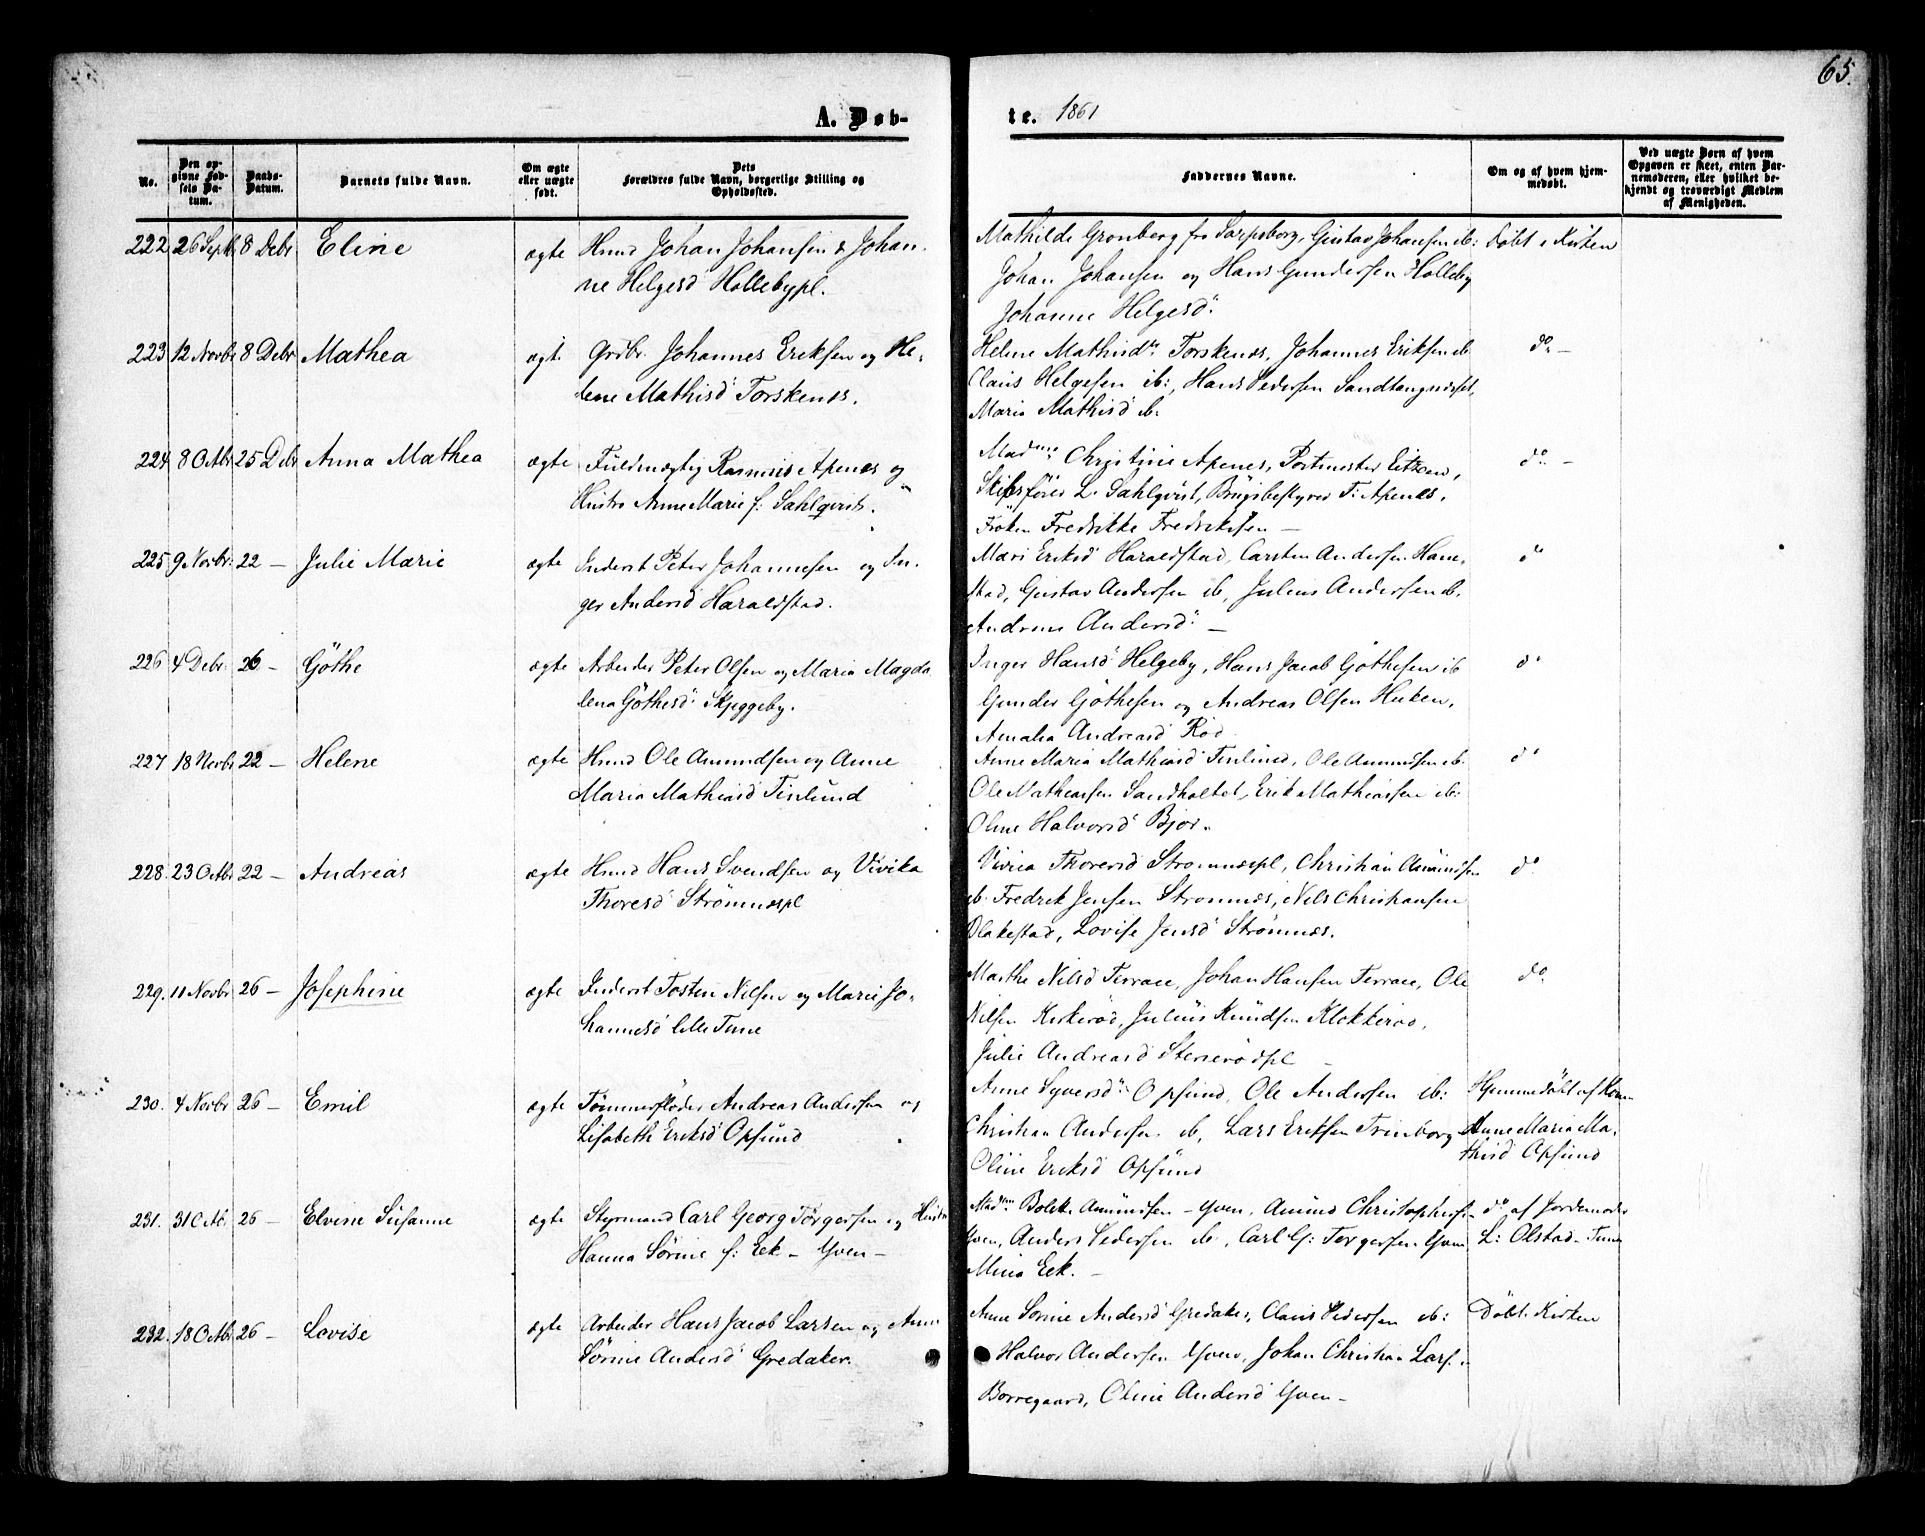 65.
A. Døb-
te. 1861
No.
Den op-
givne Fød-
sels Da-
tum.
Daabs-
Datum.
Barnets fulde Navn.
Om ægte
eller uægte
født.
Dets
Forældres fulde Navn, borgerlige Stilling og
Opholdssted.
Faddernes Navne.
Om og af hvem hjem-
medøbt.
Ved uægte Børn af hvem
Opgaven er skeet, enten Bar-
nemoderen, eller hvilket be-
kjendt og troværdigt Medlem
af Menigheden.
222 26 Septb 8 Debr Eline ægte Hmd Johan Johansen & Johan-
ne Helgesd Hollebypl.
Mathilde Gronberg fra Sarpsborg, Gustav Johansen ib:
Johan Johansen og Hans Gundersen Holleby
Johanne Helgesd:
Døbt i Kirken
223 12 Novbr 8 Debr Mathea ægt Grdbr. Johannes Eriksen og He-
lene Mathisd Torskenes.
Helene Mathisdtr Torskenes, Johannes Eriksen ib
Claus Helgesen ib:, Hans Pedersen Sandtangen
Maria Mathisd ib:
do —
224 8 Octbr 25 Debr Anna Mathea ægte Fuldmægtig Rasmus Apenes og
Hustro Anne Marie f: Sahlqvist.
Madme Christine Apenes, Postmester Eitzen,
Skibsfører L. Sahlqvist, Brugsbestyrer T: Apenes,
Frøken Fredrikke Fredriksen —
do —
225 9 Novbr: 22 — Julie Marie ægte Inderst Peter Johannesen og In-
ger Andersd Haraldstad.
Mari Eriksd Haraldstad, Carsten Andersen Hane-
stad, Gustav Andersen ib, Julius Andersen ib.
Andrine Andersd: —
do
226 4 Debr: 26 — Göthe ægte Arbeider Peter Olsen og Maria Magda
lena Göthesd: Skjeggeby.
Inger Hansd Helgeby, Hans Jacob Göthesen ib
Gunder Göthesen og Andreas Olsen Huken,
Amalia Andreasd Rød
do
227 18 Novbr 22 — Helene ægte Hmd Ole Amundsen og Anne
Maria Mathiasd Tinlund
Anne Maria Mathiasd Tinlund, Ole Amundsen ib.
Ole Matheasen Sandholtet, Erik Mathiassen ib:
Oline Halvorsd Bjør.
do
228. 23 Octbr 22 — Andreas ægte Hmd Hans Svendsen og Vivika
Thoresd Strömnespl
Vivica Thoresd Stromnespl, Christian Amundsen
ib. Fredrik Jensen Stromnes, Nils Christiansen
Olakestad, Lovise Jensd Strömnes.
do
229. 11 Novbr 26 — Josephine ægte Inderst Tosten Nilsen og Marie Jo-
hannesd lille Tune
Marthe Nilsd Terrace, Johan Hansen Terrace, Ole
Nilsen Kirkerød, Julius Knudsen Klokkerød,
Julie Andreasd Stenerödpl —
do
230. 4 Novbr 26 — Emil ægte Tömmerfløder Andreas Andersen og
Lisabeth Eriksd Opsund
Anne Syversdtr Opsund, Ole Andersen ib:
Christian Andersen ib, Lars Eriksen Trinborg
Oline Eriksd Opsund
Hjemmedöbt af Kone
Anne Maria Ma-
thisd Opsund
231. 31 Octbr 26 — Elvine Susanne ægte Styrmand Carl Georg Törgersen og Hustro
Hanna Sörine f: Eek — Yven —
Madme Bolet Amundsen — Yven, Amund Christophers-
Yven, Anders Pedersen ib, Carl G: Torgersen Yven
Mina Eek. —
do af Jordemoder
L: Olstad Tune
232. 18 Octbr 26 — Lovise ægte Arbeider Hans Jacob Larsen og Anne
Sörine Andersd Gredaker.
Anne Sörine Andersd Gredaker, Claus Pedersen ib:
Halvor Andersen Yven, Johan Christian Lars.
Borregaard, Oline Andersd Yven —
Döbt i Kirken